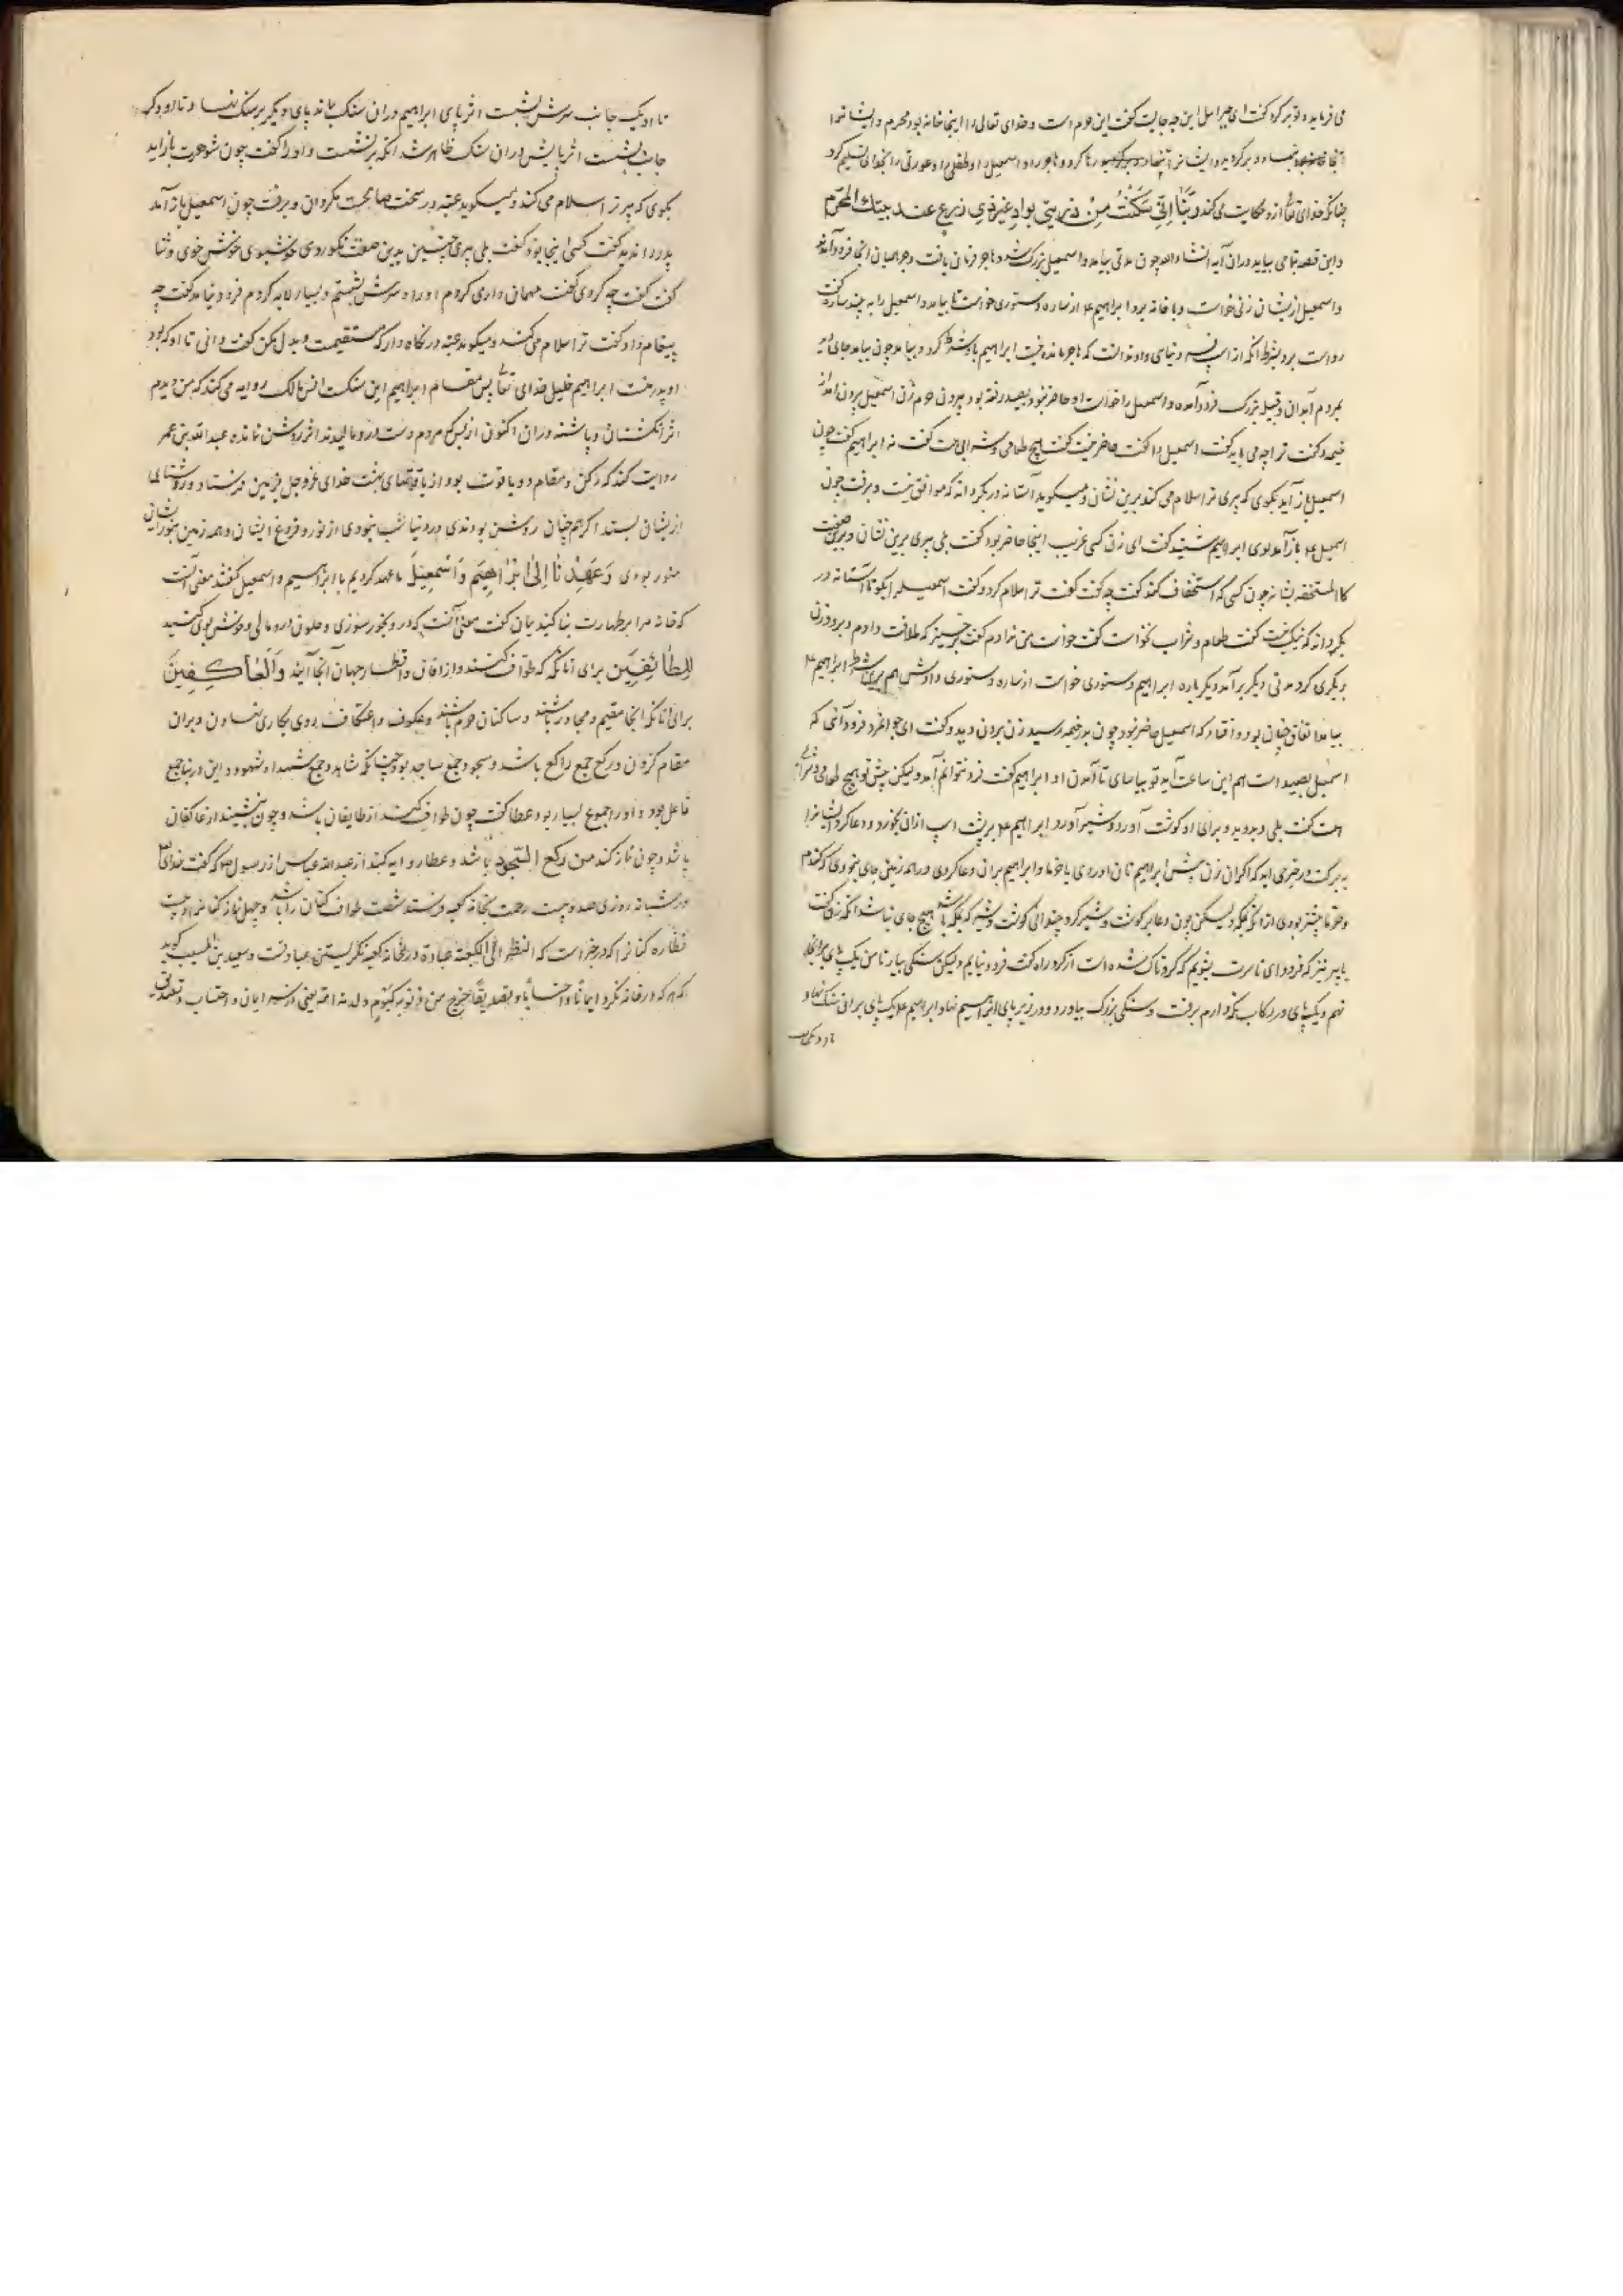 می فرماید و توبه کرد گفت ای جبرئیل این چه جایست گفت این حرم است و خدای تعالی را اینجا خانه بود محرم و ایشانرا
آنجا بنهاد و برگردید و ایشانرا آنجا رها کرد و هاجر را و اسمعیل را و طفلی را و عورتی را بخدای تسلیم کرد
چنانکه خدای تعا ازو حکایت می کند رَبَّنا اِنّی سَکَنْتُ مِنْ ذریتی بوادٍ غیر ذی زرع عند بیتك المحرّم
و این قصه بتمامی بیاید در آن آیه انشاء الله چون مدتی بیامد و اسمعیل بزرگ شد و هاجر فرمان یافت و جرهمیان آنجا فرود آمدند
و اسمعیل از یشان زنی خواست و با خانه برد ابراهیم ع از ساره دستوری خواست تا بیامد و اسمعیل را به بیند ساره گفت
رواست برو بشرط آنکه از اسپ فرو نیایی و او ندانست که هاجر مانده نیست ابراهیم با او شرط کرد و بیامد چون بیامد جای دید
بمردم آبدان و قبیله بزرگ فرود آمده و اسمعیل را خواست او حاضر نبود بصید رفته بود بیرون حرم زن اسمعیل بیرون آمد از
خیمه و گفت ترا چه می باید گفت اسمعیل را گفت حاضر نیست گفت هیچ طعامی و شرابی هست گفت نه ابراهیم گفت چون
اسمعیل باز آید بگوی که پیری ترا سلام می کند برین نشان و میگوید آستانه در بگردان که موافق نیست و برفت چون
اسمعیل ع باز آمد بوی ابراهیم شنید گفت ای زن کسی غریب اینجا حاضر بود گفت بلی پیری برین نشان و برین صفت
کالمستخفه بشانه چون کسی که استخفاف کند گفت چه گفت گفت ترا سلام کرد و گفت اسمعیل را بگو تا آستانه در
بگرداند که نیک نیست گفت طعام و شراب نخواست گفت خواست من ندادم گفت برخیز که طلاقت دادم و برو و زن
دیگری کرد مدتی دیگر برآمد دیگر باره ابراهیم دستوری خواست از ساره دستوری دادش هم برین شرط ابراهیم ع
بیامد اتفاق چنان بود و افتاد که اسمعیل حاضر نبود چون بدر خیمه رسید زن بیرون دوید و گفت ای جوانمرد فرود آئی که
اسمعیل بصید است هم این ساعت آید تو بیاسای تا آمدن او ابراهیم گفت فرو نتوانم آمد ولیکن پیش تو هیچ طعامی و شرابی
هست گفت بلی و بدوید و برای او گوشت آورد و شیر آورد ابراهیم ع بر پشت اسپ ازان بخورد و دعا کرد ایشانرا
به برکت و در خبری آید که اگر آن زن پیش ابراهیم نان آوردی یا خرما و ابراهیم بران دعا کردی در همه زمین جای نبودی که گندم
و خرما بیشتر بودی از آنکه بمکه و لیکن چون دعا بر گوشت و شیر کرد چندانی گوشت و شیر که بمکه باشد هیچ جای نباشد آنکه زن گفت
یا پیر نیز که فرود آی تا سرت بشویم که گرد ناک شده است از گرد راه گفت فرود نیایم ولیکن سنگی بیار تا من یک پای بر آنجا
نهم و یک پای در رکاب نگه دارم برفت و سنگی بزرگ بیاورد و در زیر پای ابراهیم نهاد ابراهیم ع یک پای بر ان سنگ نهاد و
تا او یک جانب سرش بشست اثر پای ابراهیم دران سنگ بماند پای دیگر بر سنگ نهاد و تا او دیگر
جانب بشست اثر پایش دران سنگ ظاهر شد آنکه برنشست و او را گفت چون شوهرت باز آید
بگوی که پیر ترا سلام می کند و میگوید عتبه در سخت صالحست مگردان و برفت چون اسمعیل باز آمد
پدر را ندید گفت کسی اینجا بود گفت بلی پیری چنین بدین صفت نکو روی خوشبوی خوش خوی و ثنا
گفت گفت چه کردی گفت مهمان داری کردم او را و سرش بشستم و بسیار لابه کردم فرود نیامد گفت چه
پیغام داد گفت ترا سلام می کند و میگوید عتبه در نگاه دار که مستقیمست و بدل مکن گفت دانی تا او که بود
او پدر منست ابراهیم خلیل خدای تعا پس مقام ابراهیم این سنگست انس مالک روایه می کند که من دیدم
اثر انگشتان و پاشنه دران اکنون از بس که مردم دست درو مالیدند اثر روشن نمانده عبد الله بن عمر
روایت کند که رکن و مقام دو یاقوت بود از یاقوتهای بهشت خدای عز و جل بزمین فرستاد و روشنای
از یشان بستد اگر همچنان روشن بودندی در دنیا شب نبودی از نور و فروغ ایشان و همه زمین بنور ایشان
منور بودی وَعَهِدْنا اِلیٰ اِبْراهِیمَ وَاِسْمعِیلَ ما عهد کردیم با ابراهیم و اسمعیل گفتند معنی آنست
که خانه مرا بر طهارت بنا کنید یمان گفت معنی آنست که درو بخور سوزی و خلوق درو مالی و خوش بوی کنید
لِلطّائِفِینَ برای آنانکه که طواف کنند و از افاق و اقطار جهان آنجا آیند وَالْعاکِفِینَ
برای آنانکه آنجا مقیم و مجاور باشند و ساکنان حرم باشند و عکوف و اعتکاف روی بکاری نهادن و بران
مقام کردن و رکع جمع راکع باشد و سجود جمع ساجد بود چنانکه شاهد و جمع شهدا و شهود و این در بنا جمع
فاعل بود و او را جموع بسیار بود عطا گفت چون طواف کنند از طایفان باشد و چون بنشیند از عاکفان
باشد و چون نماز کند من رکع السّجود باشد و عطا روایه کند از عبد الله عباس از رسول ص که گفت خدای
در شبانه روزی صد و بیست رحمت بخانه کعبه فرستد شصت طواف کنان را باشد و چهل نماز کنانرا و بیست
نظاره کنانرا که در خبر است که النظر الی الکعبة عبادة در خانه کعبه نگریستن عبادتست و سعید بن المسیب گوید
که هر که در خانه نگرد ایمانًا و احتسابًا و تصدیقًا خرج من ذنوبه کیوم ولدته امه یعنی از سر ایمان و احتساب و تصدیق